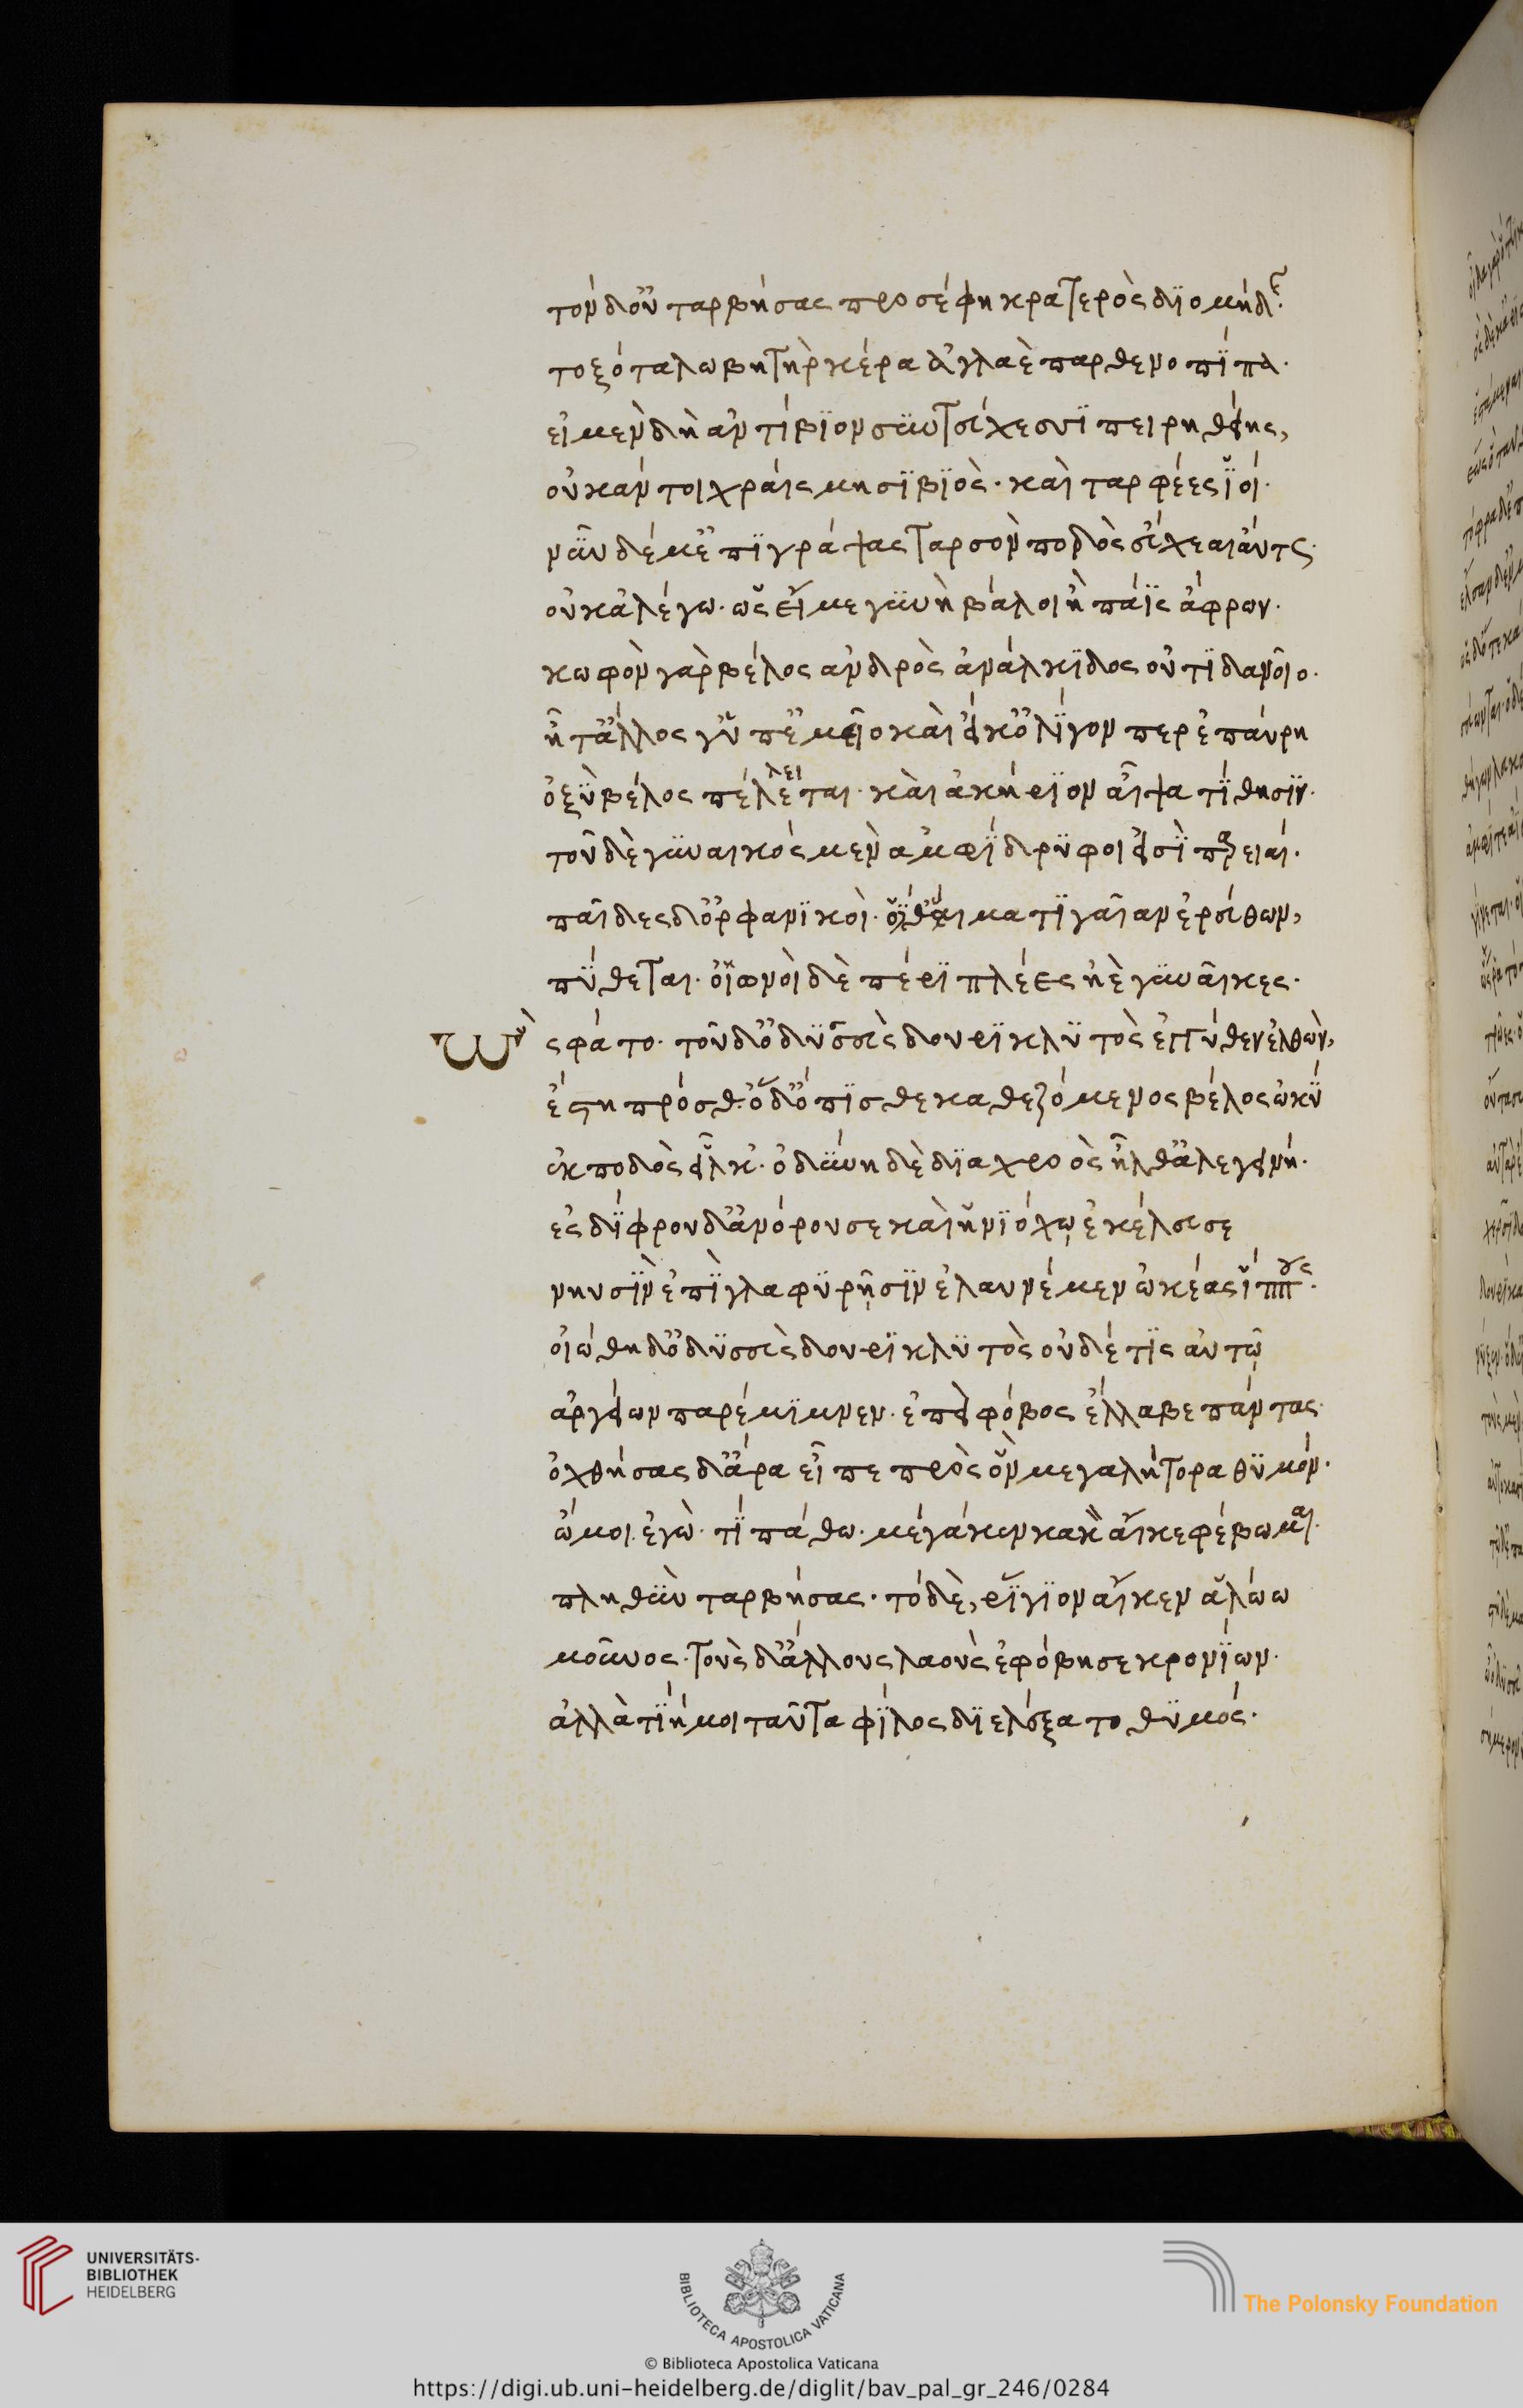 τὸν δ' οὐ ταρβήσας προσέφη κρατερὸς διομήδης
τοξότα λωβητὴρ κέρα ἀγλαὲ παρθενοπῖπα·
εἰ μὲν δὴ ἀντίβιον σὺν τεύχεσι πειρηθείης,
οὐκ ἄν τοι χραίσμησι βιὸς· καὶ ταρφέες ἰοί·
νῦν δέ μ' ἐπιγράψας ταρσὸν ποδὸς εὔχεαι αὔτως·
οὐκ ἀλέγω· ὡς εἴ με γυνὴ βάλοι ἢ πάϊς ἄφρων·
κωφὸν γὰρ βέλος ἀνδρὸς ἀνάλκιδος οὐτιδανοῖο·
ἦ τ' ἄλλως ὑπ' ἐμεῖο καὶ εἴ κ' ὀλίγον περ ἐπαύρη
ὀξὺ βέλος πέλεται· καὶ ἀκήριον αἶψα τίθησιν·
λει
τοῦ δὲ γυναικὸς μὲν ἀμφίδρυφοι εἰσὶ παρειαί·
παῖδες δ' ὀρφανικοὶ· ὁ δέ θ' αἵματι γαῖαν ἐρεύθων,
πύθεται· οἰωνοὶ δὲ πέρι πλέες ἠὲ γυναῖκες·
Ὣς φάτο· τοῦ δ' ὀδυσσεὺς δουρικλυτὸς ἐγγύθεν ἐλθὼν,
ἔστη πρόσθ' ὁ δ' ὄπισθε καθεζόμενος βέλος ὠκὺ
ἐκ ποδὸς εἷλκ'· ὀδύνη δὲ διὰ χροὸς ἦλθ' ἀλεγεινή·
ἐς δίφρον δ' ἀνόρουσε καὶ ἡνιόχῳ ἐκέλευσε
νηυσὶν ἐπὶ γλαφυρῆσιν ἐλαυνέμεν ὠκέας ἵππους·
οἰώθη δ' ὀδυσσεὺς δουρικλυτὸς οὐδέ τις αὐτῷ
ἀργείων παρέμιμνεν· ἐπεὶ φόβος ἔλλαβε πάντας·
ὀχθήσας δ' ἄρα εἶπε πρὸς ὃν μεγαλήτορα θυμόν·
ὤμοι ἐγὼ· τί πάθω· μέγα μὲν κακὸν αἴ κε φέβωμαι·
πληθὺν ταρβήσας· τὸ δὲ, ῥίγιον αἴ κεν ἁλώω
μοῦνος· τοὺς δ' ἄλλους λαοὺς ἐφόβησε κρονίων·
ἀλλὰ τίη μοι ταῦτα φίλος διελέξατο θυμός·
UNIVERSITÄTS-
BIBLIOTHEK
HEIDELBERG
BIBLIOTECA APOSTOLICA VATICANA
The Polonsky Foundation
© Biblioteca Apostolica Vaticana
https://digi.ub.uni-heidelberg.de/diglit/bav_pal_gr_246/0284